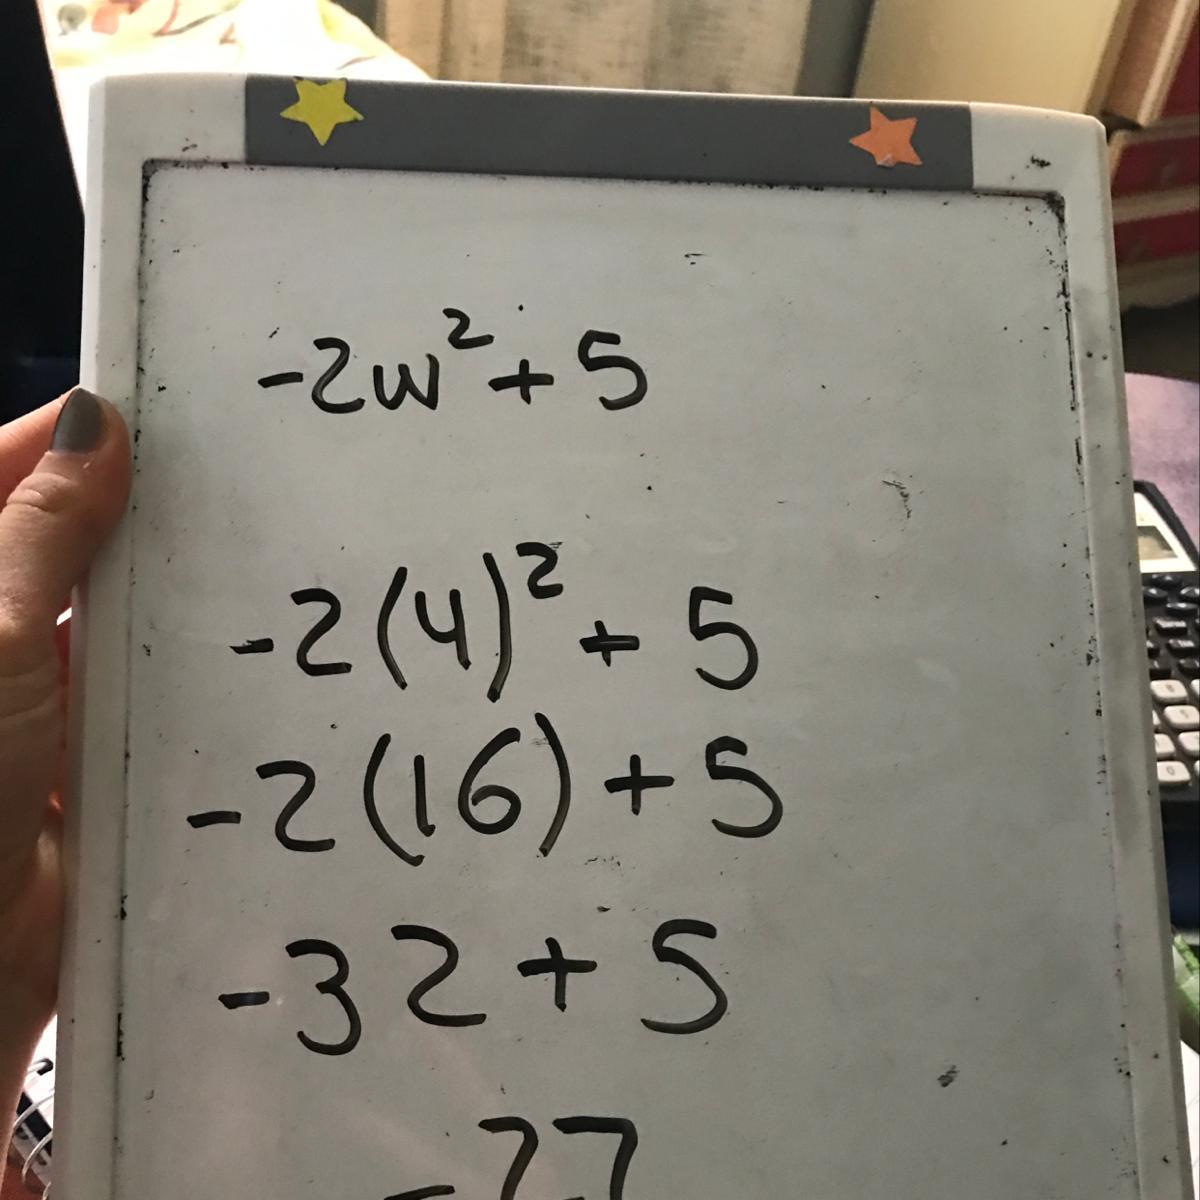 -2w²+5
-2(4)²+5
-2(16)+5
-32+5
-27